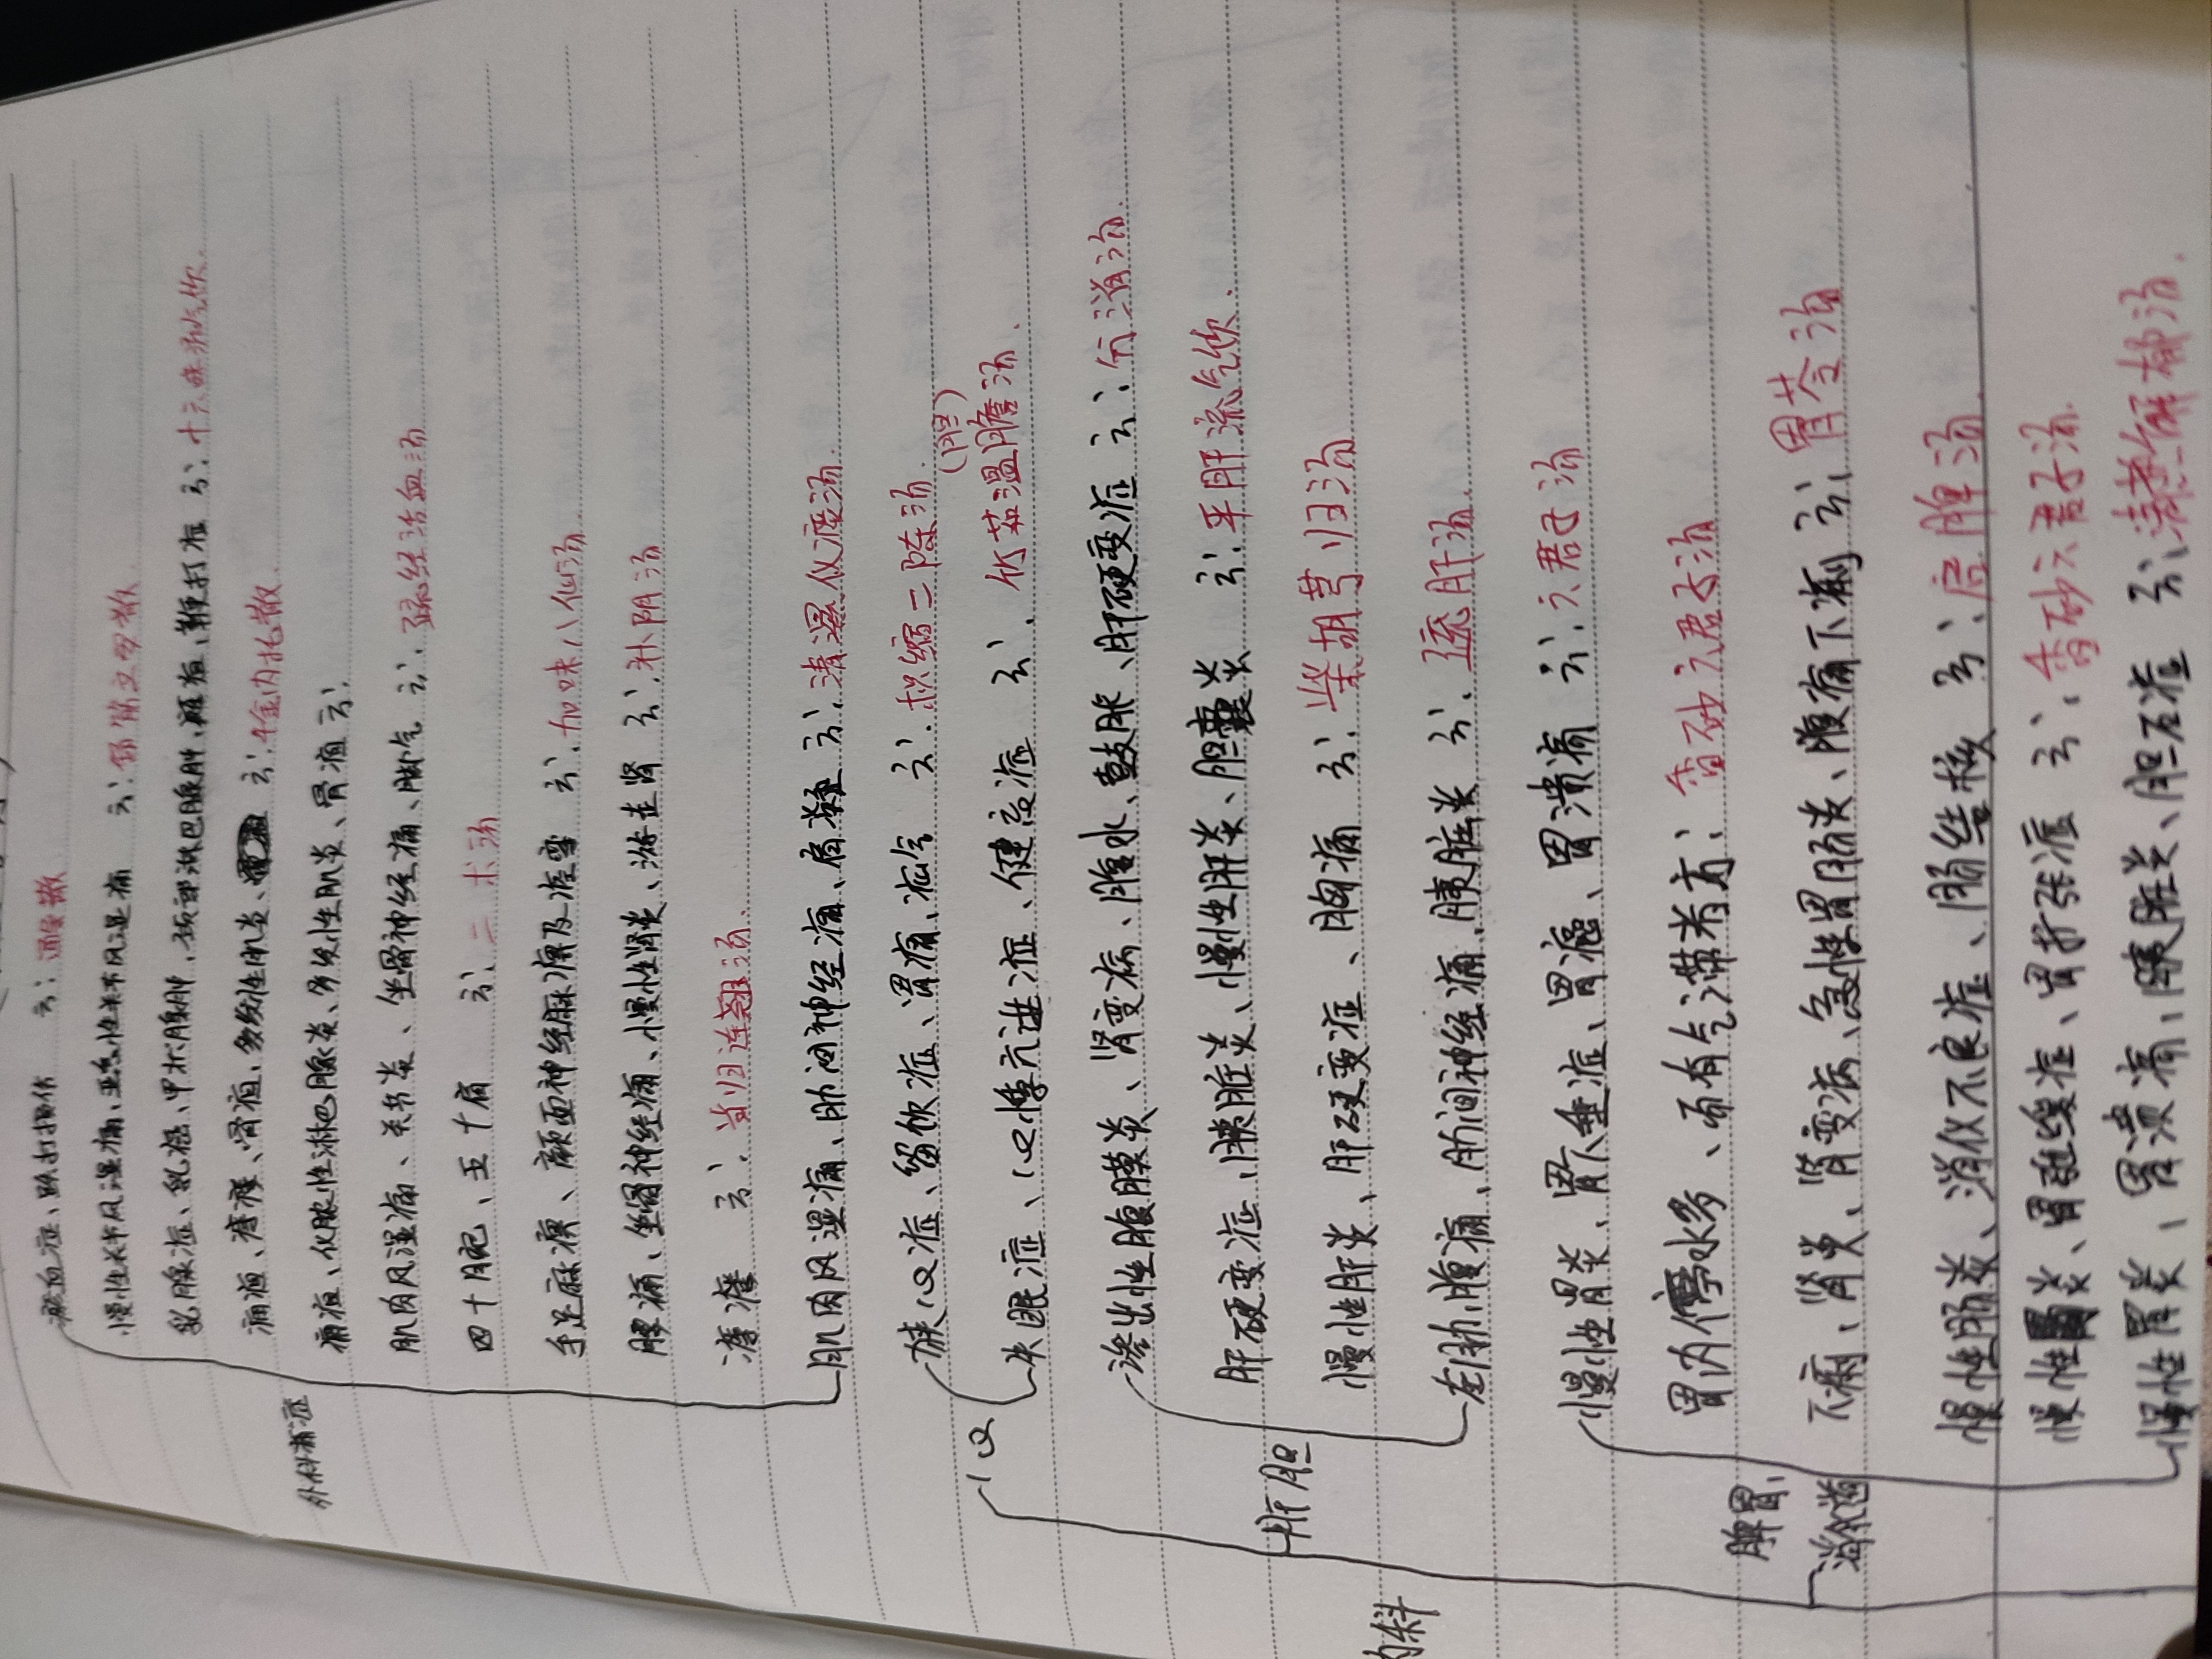 瘀血症、跌打损伤 云：通导散
慢性关节风湿痛、亚急性关节风湿痛 云：
乳腺症、乳癌、甲状腺肿、颈部淋巴腺肿、 云：十六味流气饮.
痈疽、瘰疬、骨疽、多发性肌炎、 云：千金内托散
痈疽、化脓性淋巴腺炎、多发性肌炎、骨疽 云：
肌肉风湿痛、关节炎、坐骨神经痛、脚气 云：疏经活血汤
四十腕、五十肩 云：二术汤
手足麻痹、颜面神经麻痹及痉挛 云：加味八仙汤
腰痛、坐骨神经痛、慢性肾炎、游走肾 云：补阴汤
云：当归连翘汤.
肌肉风湿痛、肋间神经痛、肩凝 云：清湿化痰汤.
外科痛症
痰心症、留饮症、胃痛、 云：枳缩二陈汤.
失眠症、心悸亢进症、健忘症 云：竹茹温膽汤.
(胆)
心
渗出性腹膜炎、肾变病、腹水、鼓胀、肝硬变症 云：分消汤.
肝硬变症、胰脏炎、慢性肝炎、胆囊炎 云：平肝流气饮.
慢性肝炎、肝硬变症、胸痛 云：柴胡芎归汤
左胁腹痛、肋间神经痛、胰脏炎 云：疏肝汤
肝胆
慢性胃炎、胃下垂症、胃癌、胃溃疡 云：六君子汤
胃内停水多、而有气滞者方：香砂六君子汤
下痢、肾炎、肾变病、急性胃肠炎、腹痛下痢 云：胃苓汤
慢性肠炎、消化不良症、肠结核 云：启脾汤.
慢性胃炎、胃弛缓症、胃扩张症 云：香砂六君子汤.
慢性胃炎、胃溃疡、胰脏炎、胆石症 云：柴芍解郁汤.
脾胃、
消化道
内科